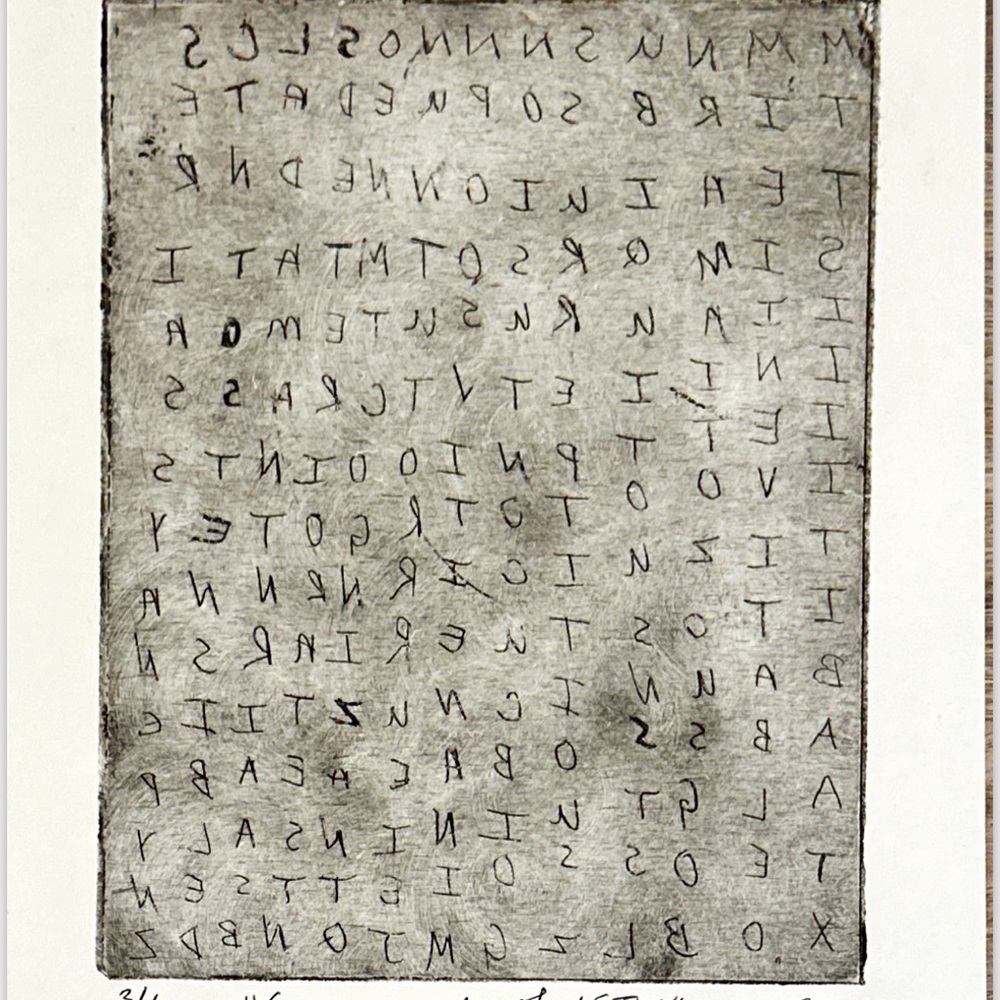 M M N U S N N N O S L C S
T I R B S O P U E D A T E
T E A I U I O N N E D N R
S I M Q R S O T N T A T I
I I A U R U S U T E M O A
I N I I E T V T C R A S S
I E T T P N I O O I N T S
I V O O T O T R G O T E Y
T I Z U I C I R N R N N A
I T O S T U E R I A R S N
B A U N I C N U Z T I I E
A B S S O B A E A E A B P
A L G T U I N I N S A L Y
T E O S S O I E T T S E N
X O B L Z G M J O N B D Z